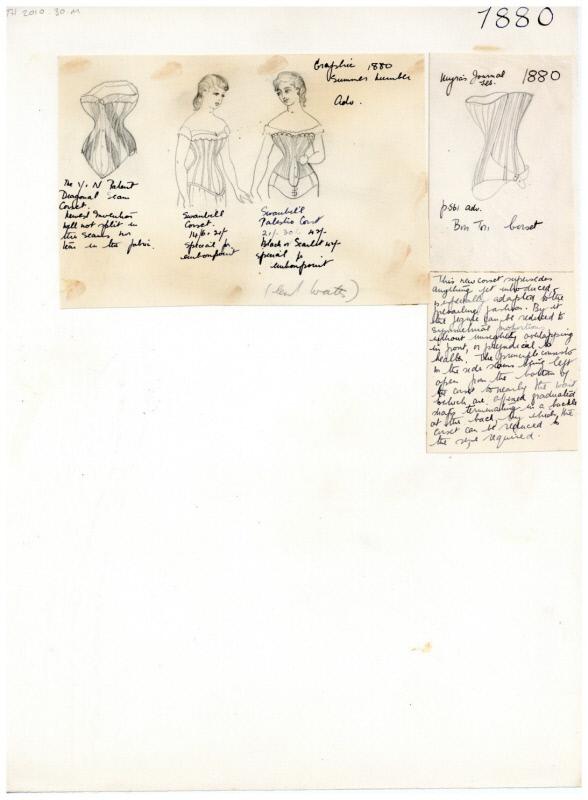 1880
Graphic 1880
Summer Number
Adv.
The Y. N Patent
Diagonal Seam
Corset.
Newest Invention
Will not split in
the Seams nor
tear in the fabric.
Swanbill
Corset.
14/6. 21/-
Special for
embonpoint
Swanbill
Corset
21/- 30/- 42/-
Black or Scarlet
special for
embonpoint
Myra's Journal
1880
Feb.
p561 adv.
Bon Ton Corset
This new corset supersedes
anything yet introduced,
especially adapted to the
prevailing fashion. By it
the figure can be reduced to
symmetrical proportions
without unsightly overlapping
in front, or prejudicial to
health. The principle consists
in the side seams being left
open from the bottom of
the corset to nearly the waist
to which are affixed graduated
straps terminating in a buckle
at the back, by which the
corset can be reduced to
the size required.